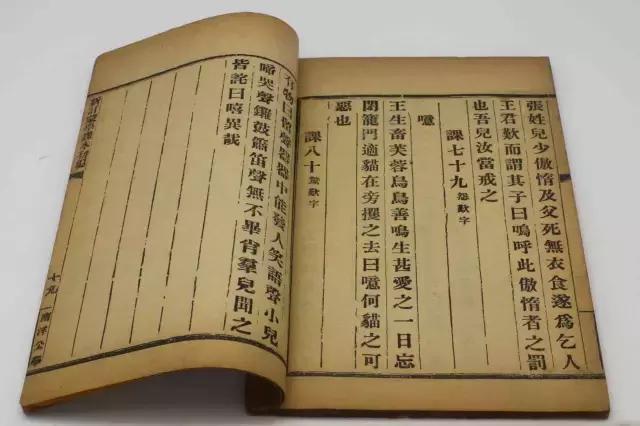 張姓兒少傲惰及父死無衣食遂爲乞人
王君歎而謂其子曰嗚呼此傲惰者之罰
也吾兒汝當戒之
課七十九 怨歎字
噫
王生畜芙蓉鳥鳥善鳴生甚愛之一日忘
閉籠門適貓在旁攫之去曰噫何貓之可
惡也
課八十 驚歎字
有物曰聲器器中能發人笑語聲小兒
啼哭聲鑼鼓簫笛聲無不畢肖羣兒聞之
皆詫曰嘻異哉
新訂蒙學課本
十九
南洋公學